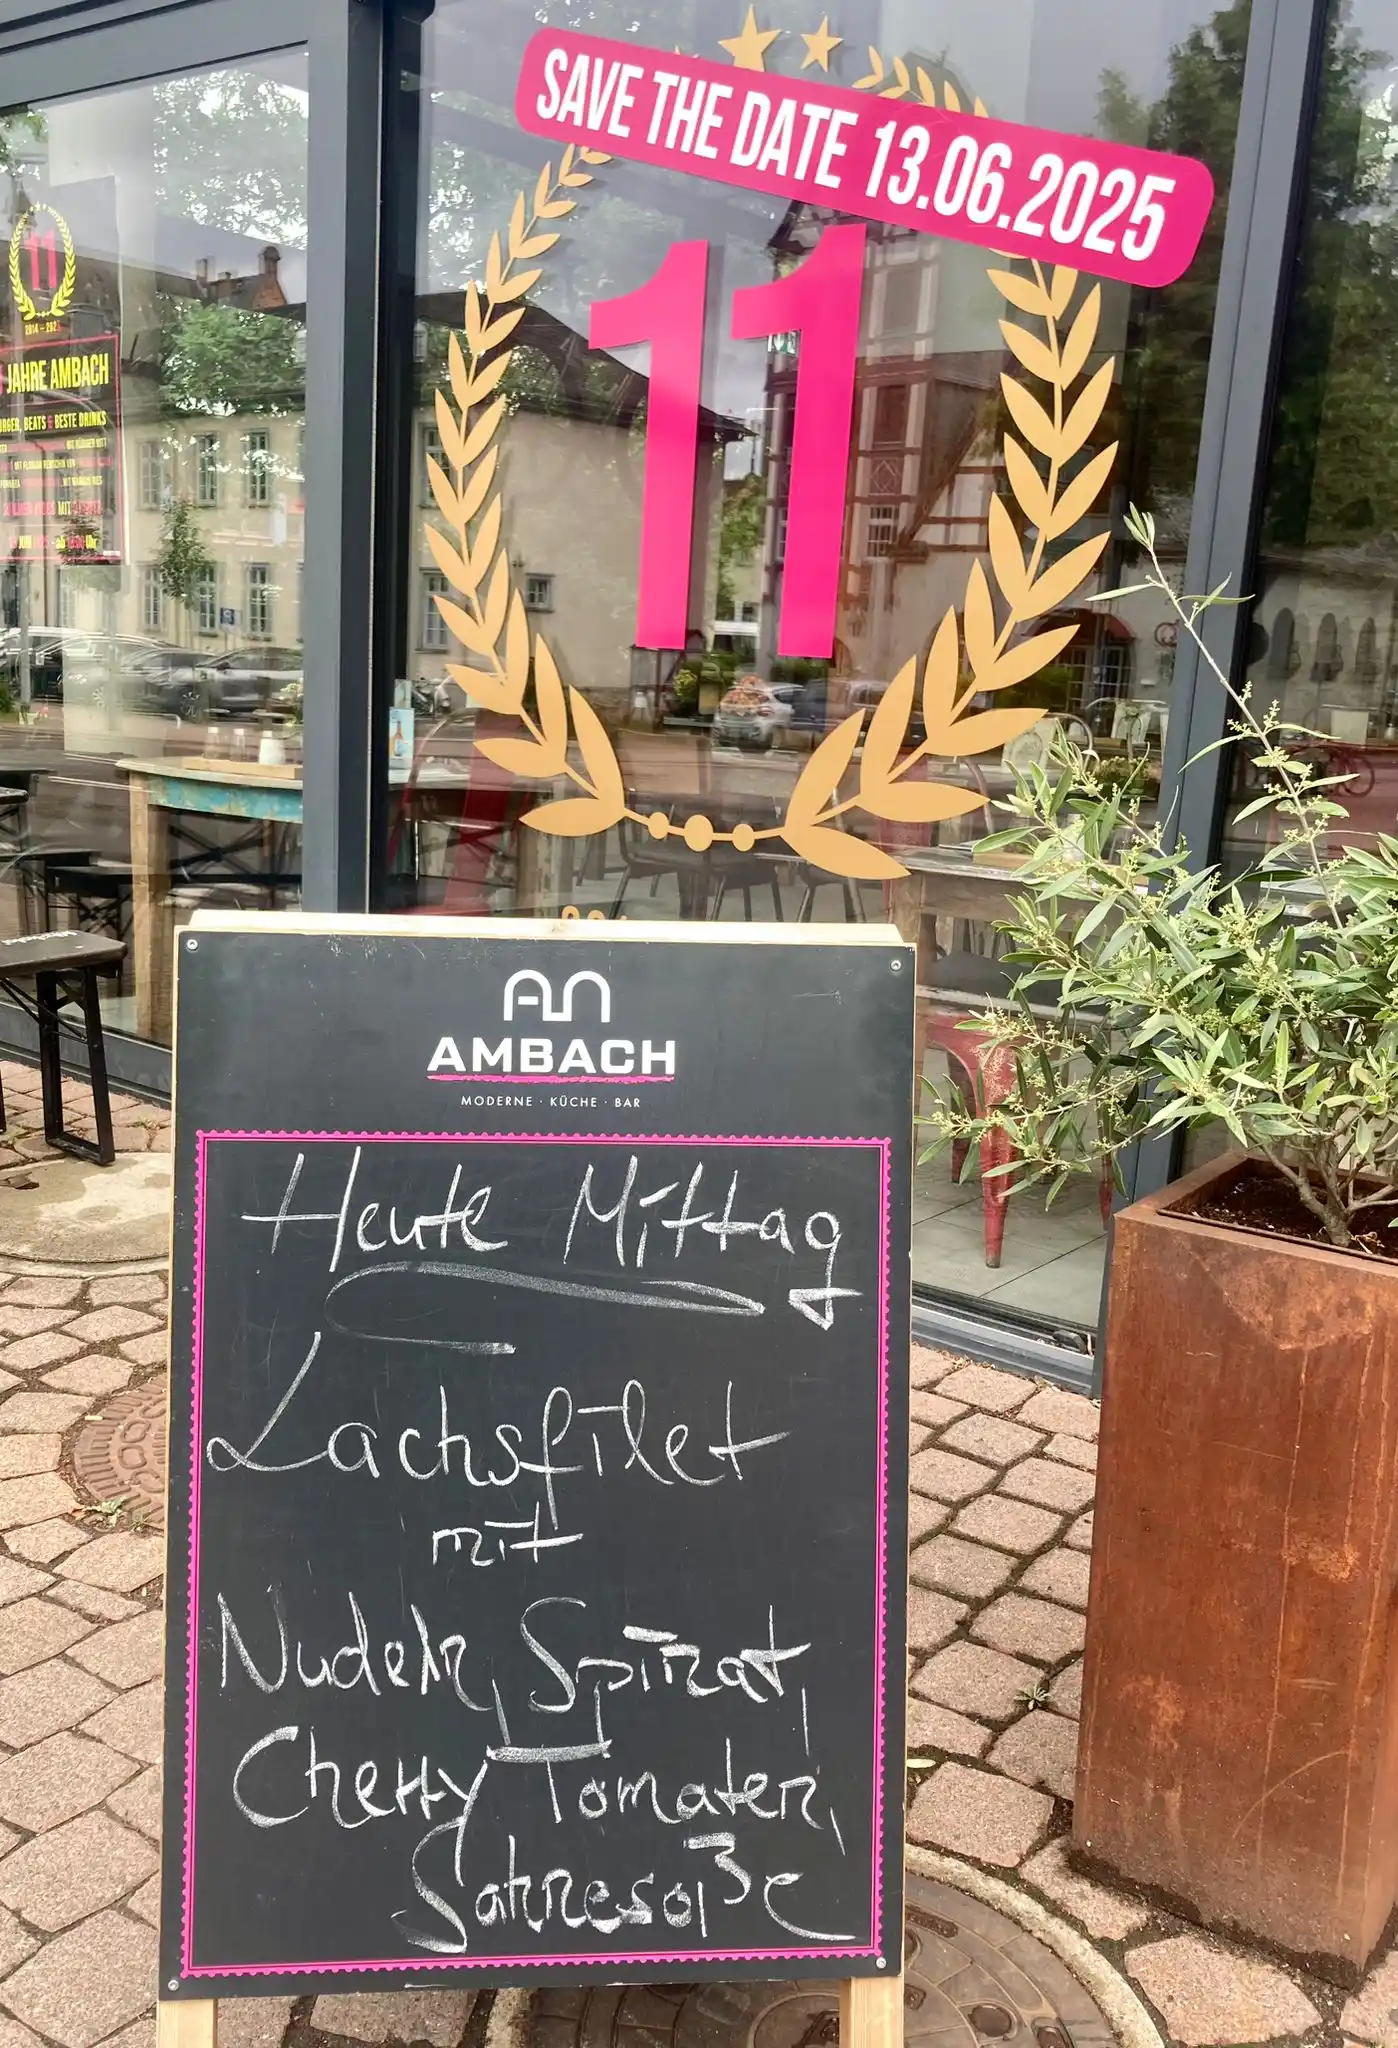 SAVE THE DATE 13.06.2025
11
11
JAHRE AMBACH
BEATS & BESTE DRINKS
AMBACH
MODERNE · KÜCHE · BAR
Heute Mittag
Lachsfilet
mit
Nudeln, Spinat,
Cherry Tomaten,
Sahnesoße